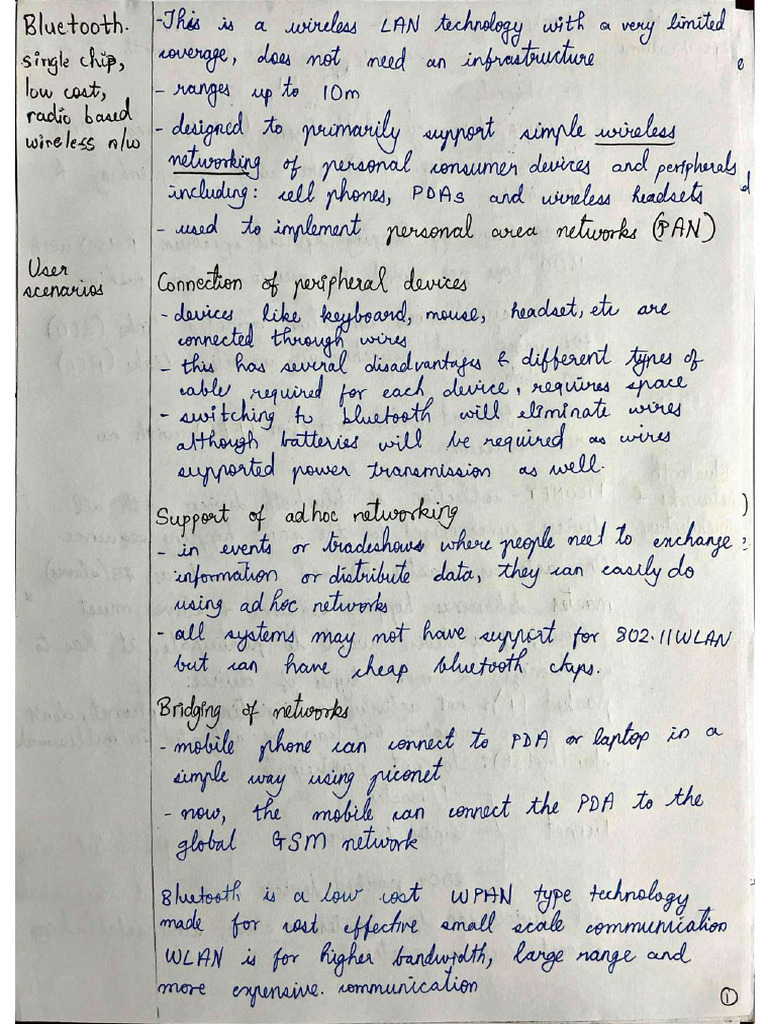 Bluetooth.
single chip,
low cost,
radio based
wireless n/w
-This is a wireless LAN technology with a very limited
coverage, does not need an infrastructure
- ranges up to 10m
- designed to primarily support simple wireless
networking of personal consumer devices and peripherals
including: cell phones, PDAs and wireless headsets
- used to implement personal area networks (PAN)
User
scenarios
Connection of peripheral devices
- devices like keyboard, mouse, headset, etc are
connected through wires
- this has several disadvantages & different types of
cable required for each device, requires space
- switching to bluetooth will eliminate wires
although batteries will be required as wires
supported power transmission as well.
Support of adhoc networking
- in events or tradeshows where people need to exchange
information or distribute data, they can easily do
using ad hoc networks
- all systems may not have support for 802.11WLAN
but can have cheap bluetooth chips.
Bridging of networks
- mobile phone can connect to PDA or laptop in a
simple way using piconet
- now, the mobile can connect the PDA to the
global GSM network
Bluetooth is a low cost WPAN type technology
made for cost effective small scale communication
WLAN is for higher bandwidth, large range and
more expensive. communication
1